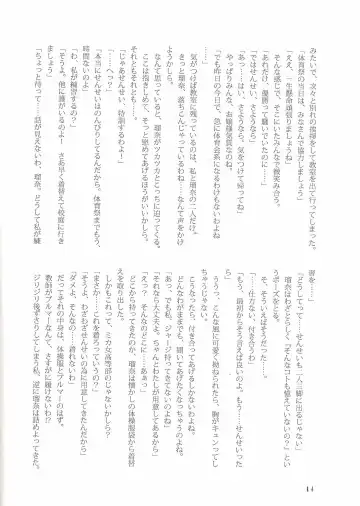 みたいで、次々と別れの挨拶をして教室を出て行ってしまった。
「体育祭の当日は、みなさんで協力しましょう」
「ええ、一生懸命頑張りましょうね」
「あれだけ、優勝って騒いでいたのに……」
そんな感じで、そこにいたみんなで微笑み合う。
「ではせんせい、さようなら」
「はい、さようなら、気をつけて帰ってね」
やっぱりみんな、お嬢様気質なのね。
「でも昨日の今日で、急に体育会系になるわけもないわよね
……」
気がつけば教室に残っているのは、私と瑠奈の二人だけ。
きっと瑠奈、落ちこんじゃっているわね……なんて声をかけ
てあげればいいのかしら？
なんて思っていると、瑠奈がツカツカとこっちに迫ってくる。
ここは抱きしめて、そっと慰めてあげるほうがいいかしら、
それともそれとも……。
「じゃあせんせい、特訓するわよ！」
「……へっ？」
「本当にせんせいはのんびりしてるんだから。体育祭まで、もう
時間ないのよ」
「わ、私が練習するの？」
「そうよ。他に誰がいるのよ！　さあ早く着替えて校庭に行き
ましょ」
「ちょっと待って……話が見えないわ、瑠奈。どうして私が練
習を……」
「どうしてって……せんせいも二人三脚に出るじゃない」
瑠奈はわざとらしく『そんなコトも憶えていないの？』とい
うポーズをとる。
「そ、そういえばそうだった」
「もう、最初からそう言えば良いのよ。もう……せんせいった
ら……」
ううっ、そんな風に可愛く拗ねられたら、胸がキュンってし
ちゃうじゃない。
こうなったら、付き合ってあげるしかないわよね。
どんなわがままでも、聞いてあげたくなっちゃうのよね。
「あっ、でも私、ジャージ持ってきてないのよね」
「それなら大丈夫よ。ちゃんとわたしが用意してあるから」
「えっ？　そんなのどこに……ああっ」
どこから持ってきたのか、瑠奈は懐かしの体操服袋から着替
えを取り出した。
しかもこれって、ミカな女高等部のじゃないかしら？
「まさか……これを着ろっていうの？」
「そうよ。わざわざせんせいの為に用意してきたんだから」
「ダメよ、そんなの……着れないわ」
だってそれの中身は、体操服とブルマーのはず。
教師がブルマーなんて、さすがに履けないわ!?
ジリジリ後ずさりしてしまう私。逆に瑠奈は詰めよってきた。
14